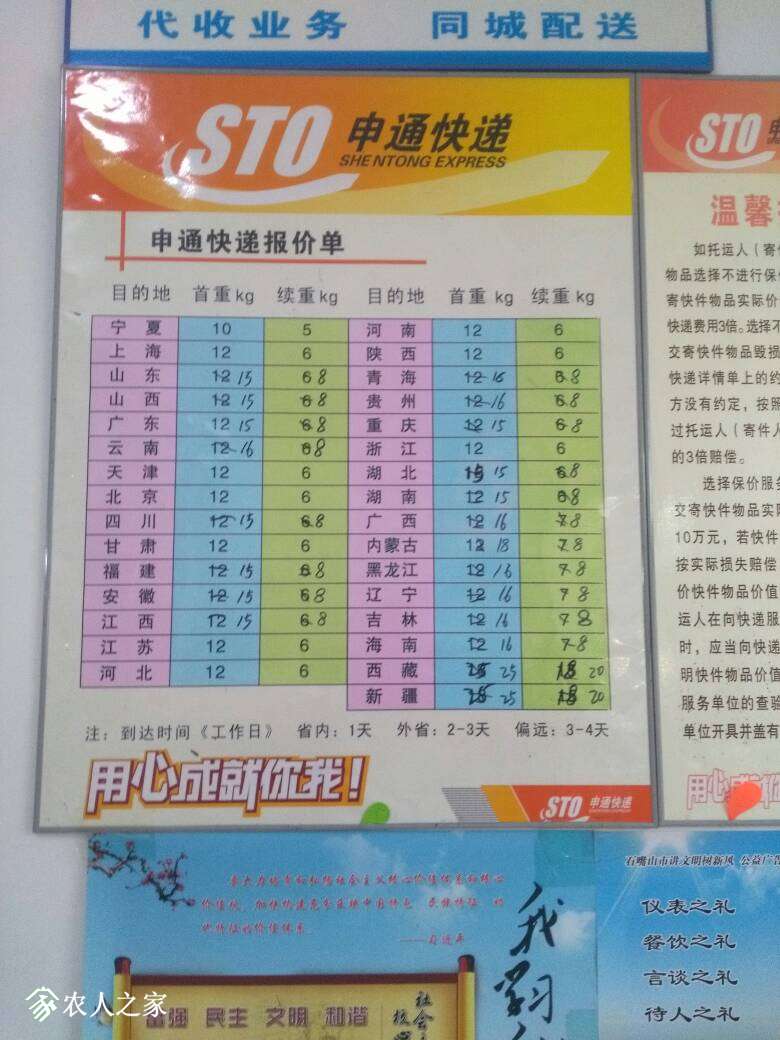 代收业务 同城配送
STO 申通快递
SHENTONG EXPRESS
申通快递报价单
目的地 首重kg 续重kg 目的地 首重kg 续重kg
宁夏 10 5 河南 12 6
上海 12 6 陕西 12 6
山东 12 15 6 8 青海 12 6 8
山西 12 15 6 8 贵州 12 16 6 8
广东 12 15 6 8 重庆 12 15 6 8
云南 12 16 6 8 浙江 12 6
天津 12 6 湖北 15 6 8
北京 12 6 湖南 12 15 6 8
四川 12 15 6 8 广西 12 16 7 8
甘肃 12 6 内蒙古 12 18 7 8
福建 12 15 6 8 黑龙江 12 16 7 8
安徽 12 15 6 8 辽宁 12 16 7 8
江西 12 15 6 8 吉林 12 16 7 8
江苏 12 6 海南 12 16 7 8
河北 12 6 西藏 25 20
新疆 25 20
注：到达时间《工作日》 省内：1天 外省：2-3天 偏远：3-4天
用心成就你我！
STO 申通快递
STO
温馨
如托运人（寄
物品选择不进行保
寄快件物品实际价
快递费用3倍。选择不
交寄快件物品毁损
快递详情单上的约
方没有约定，按照
过托运人（寄件人
的3倍赔偿。
选择保价服
交寄快件物品实际
10万元，若快件
按实际损失赔偿
价快件物品价值
运人在向快递服
时，应当向快递
明快件物品价值
服务单位的查验
单位开具并盖有
用心
——习近平
我
学习
社会
核
富强 民主 文明 和谐
石嘴山市讲文明树新风 公益广告
仪表之礼
餐饮之礼
言谈之礼
待人之礼
农人之家